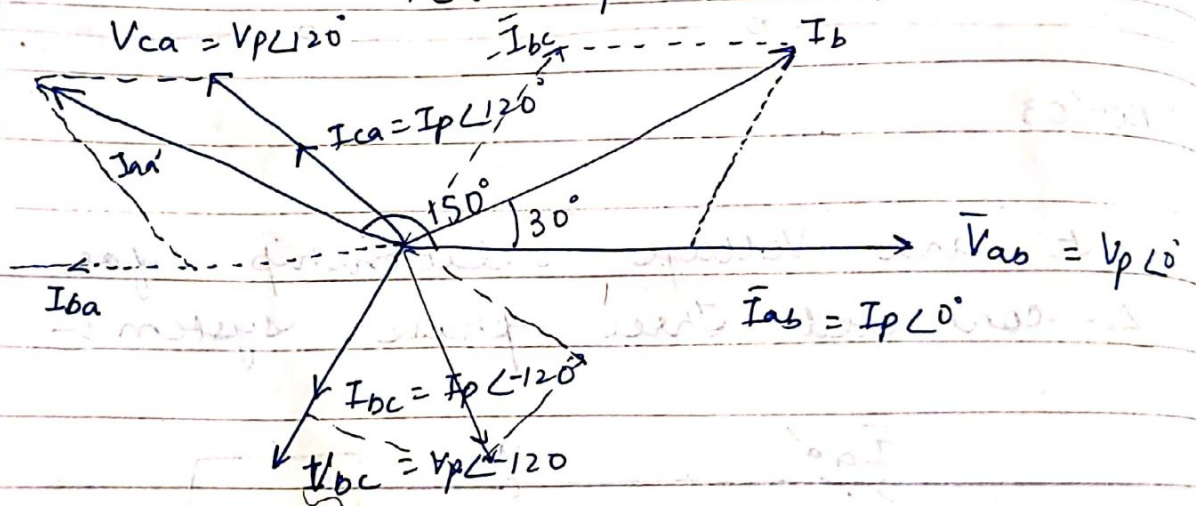 Vca = Vp∠120°
-Ībc
Ib
Ica = Ip∠120°
Iaa'
150°
30°
V̄ab = Vp∠0°
Iba
Īab = Ip∠0°
Ibc = Ip∠-120°
Vbc = Vp∠-120